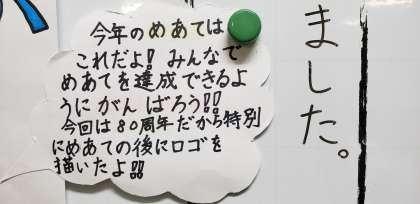 今年のめあては
これだよ!みんなで
めあてを達成できるよ
うにがんばろう!!
今回は80周年だから特別
にめあての後にロゴを
描いたよ!!
ました。